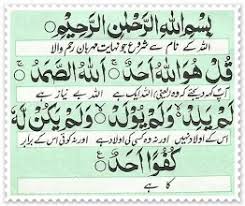 بِسْمِ اللهِ الرَّحْمٰنِ الرَّحِيْمِ
اللہ کے نام سے شروع جو نہایت مہربان رحم والا
قُلْ هُوَ اللهُ اَحَدٌ ۚ اَللهُ الصَّمَدُ ۚ
آپ کہہ دیجئے کہ وہ یعنی اللہ ایک ہے اللہ بے نیاز ہے
لَمْ يَلِدْ وَلَمْ يُوْلَدْ ۙ وَلَمْ يَكُنْ لَّهٗ
اس کے اولاد نہیں اور نہ وہ کسی کی اولاد ہے اور نہ کوئی اس کے برابر
كُفُوًا اَحَدٌ
کا ہے